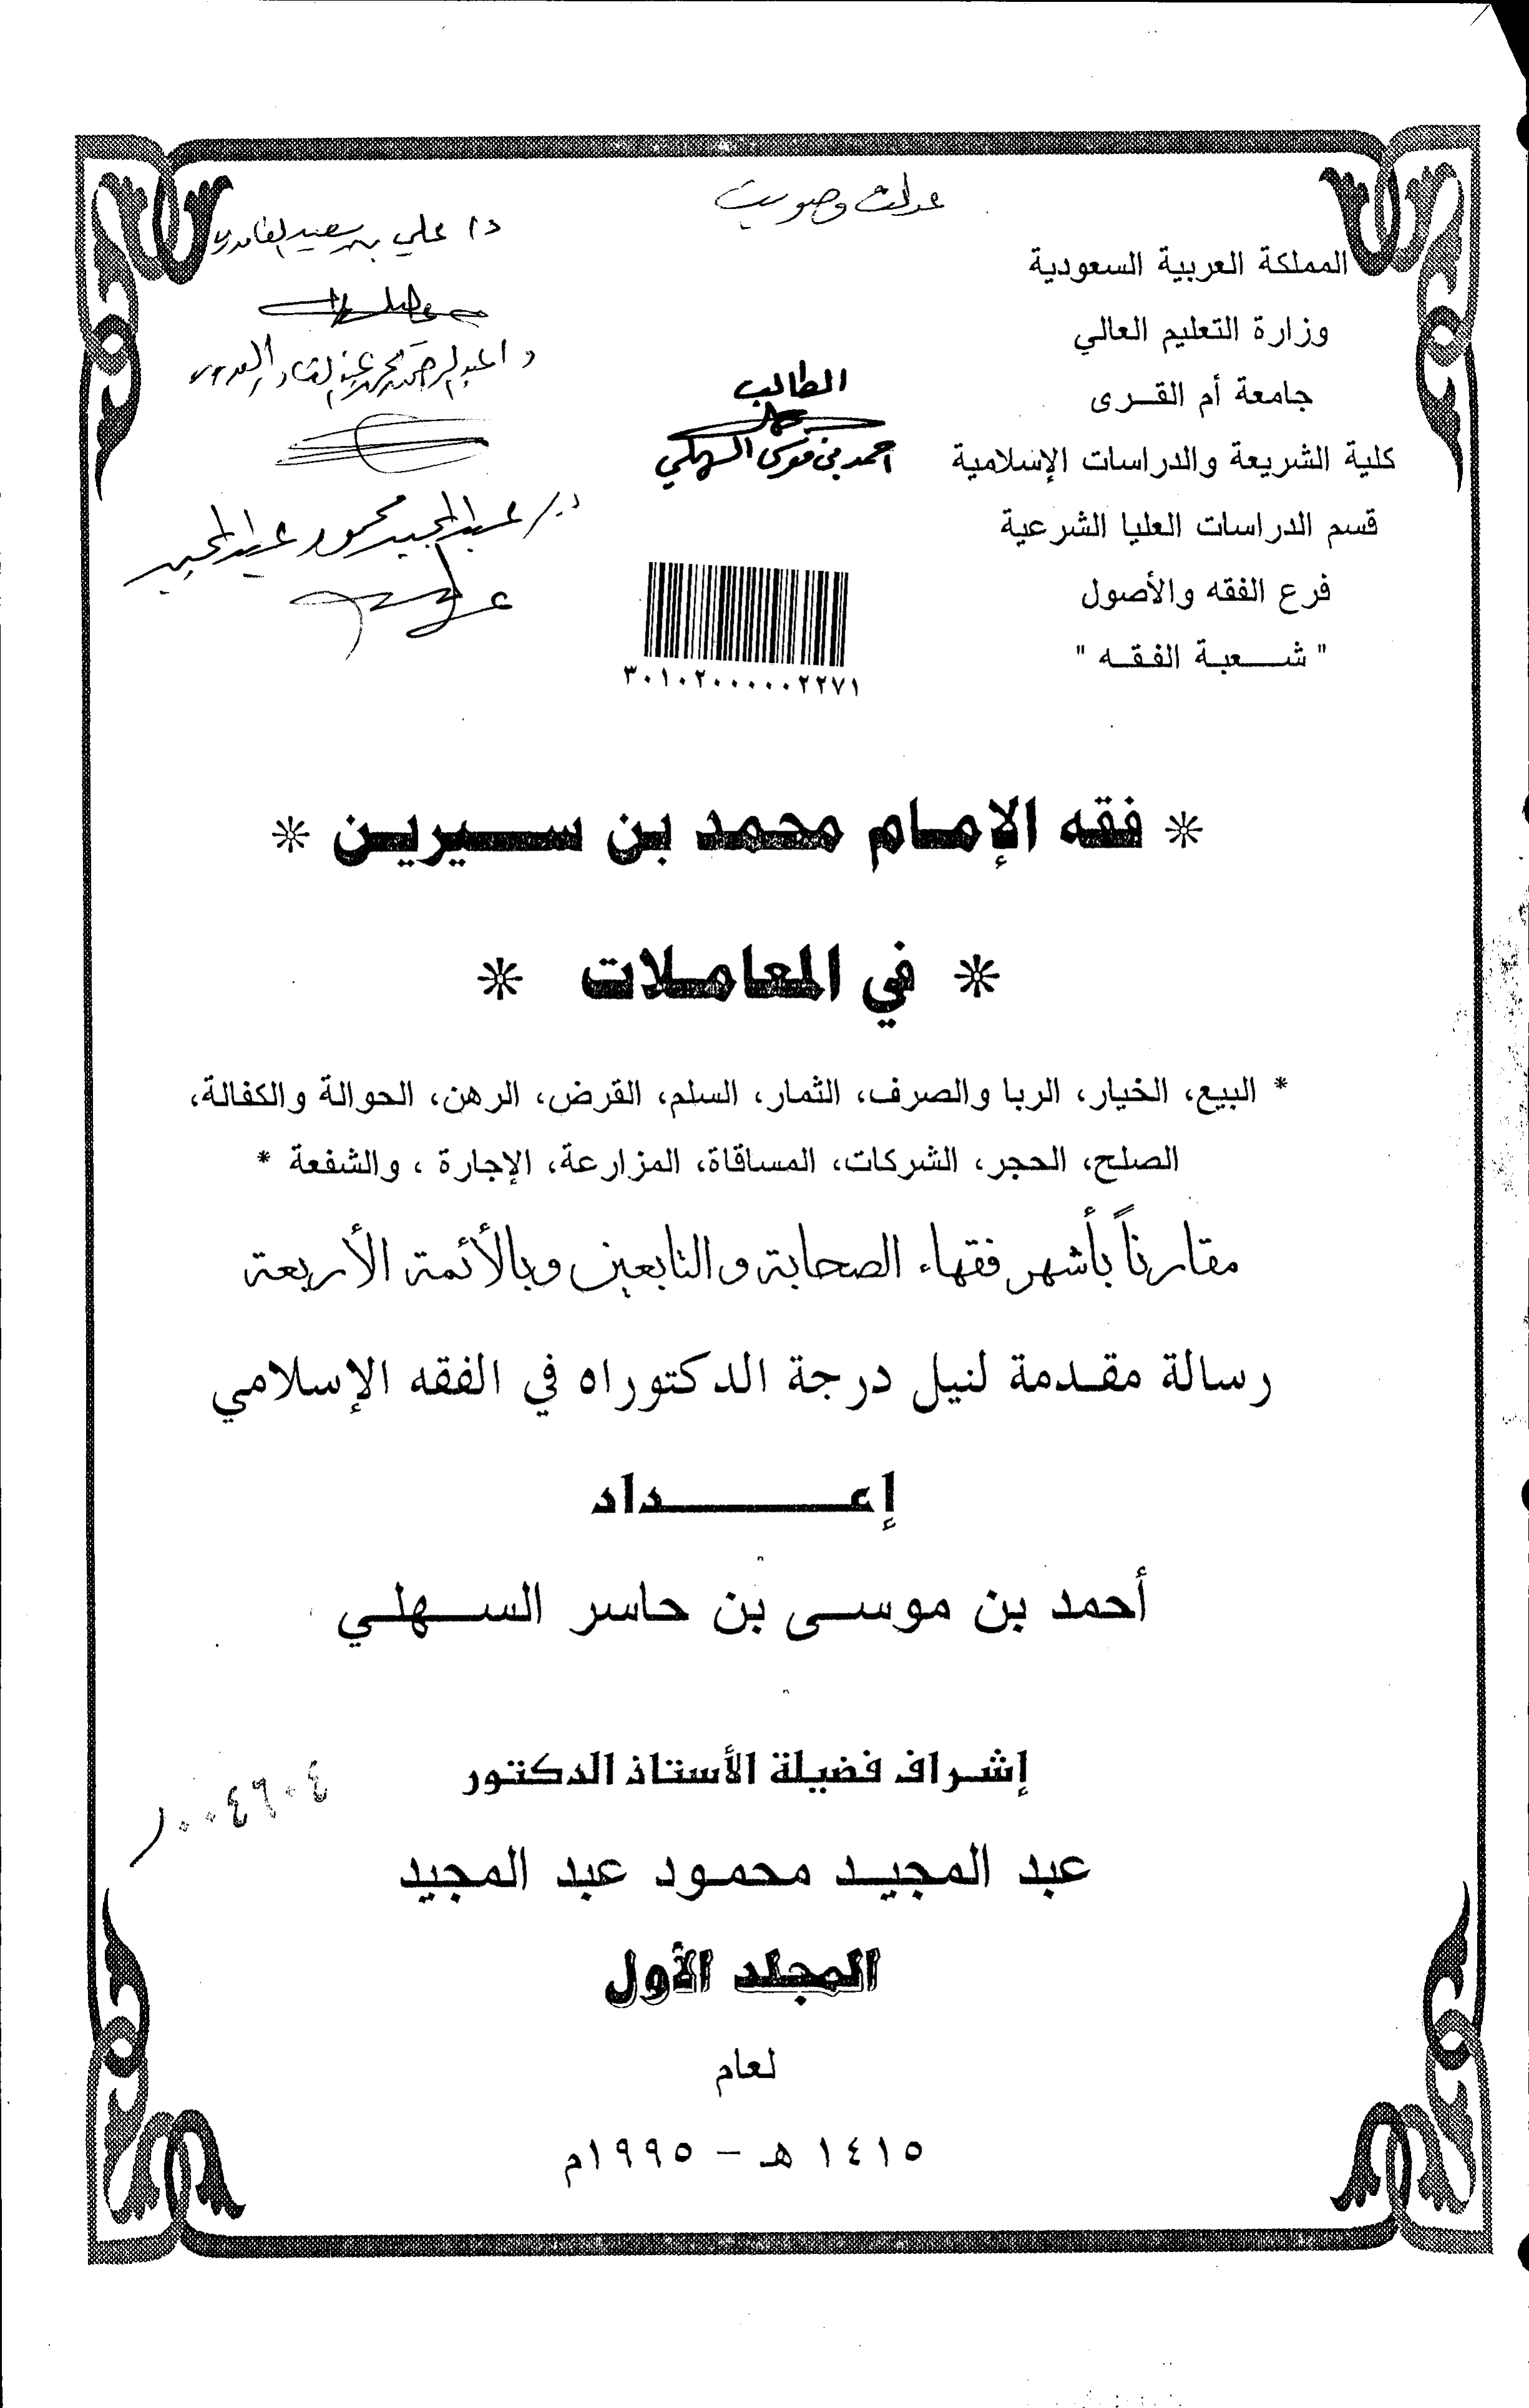 عدلت وصوبت
المملكة العربية السعودية
وزارة التعليم العالي
جامعة أم القرى
كلية الشريعة والدراسات الإسلامية
قسم الدراسات العليا الشرعية
فرع الفقه والأصول
" شعبة الفقه "
الطالب
احمد بن موسى السهلي
٣٠١٠٢٠٠٠٠٠٢٢٧١
د/ علي بن سعيد الغامدي
د/ عبدالرحمن محمد عبدالقادر
د./ عبدالمجيد محمود عبدالمجيد
* فقه الإمام محمد بن سيرين *
* في المعاملات *
* البيع، الخيار، الربا والصرف، الثمار، السلم، القرض، الرهن، الحوالة والكفالة،
الصلح، الحجر، الشركات، المساقاة، المزارعة، الإجارة ، والشفعة *
مقارناً بأشهر فقهاء الصحابة والتابعين وبالأئمة الأربعة
رسالة مقدمة لنيل درجة الدكتوراه في الفقه الإسلامي
إعداد
أحمد بن موسى بن حاسر السهلي
إشراف فضيلة الأستاذ الدكتور
عبد المجيد محمود عبد المجيد
١٠٠٤٦٠٤
المجلد الأول
لعام
١٤١٥ هـ – ١٩٩٥م